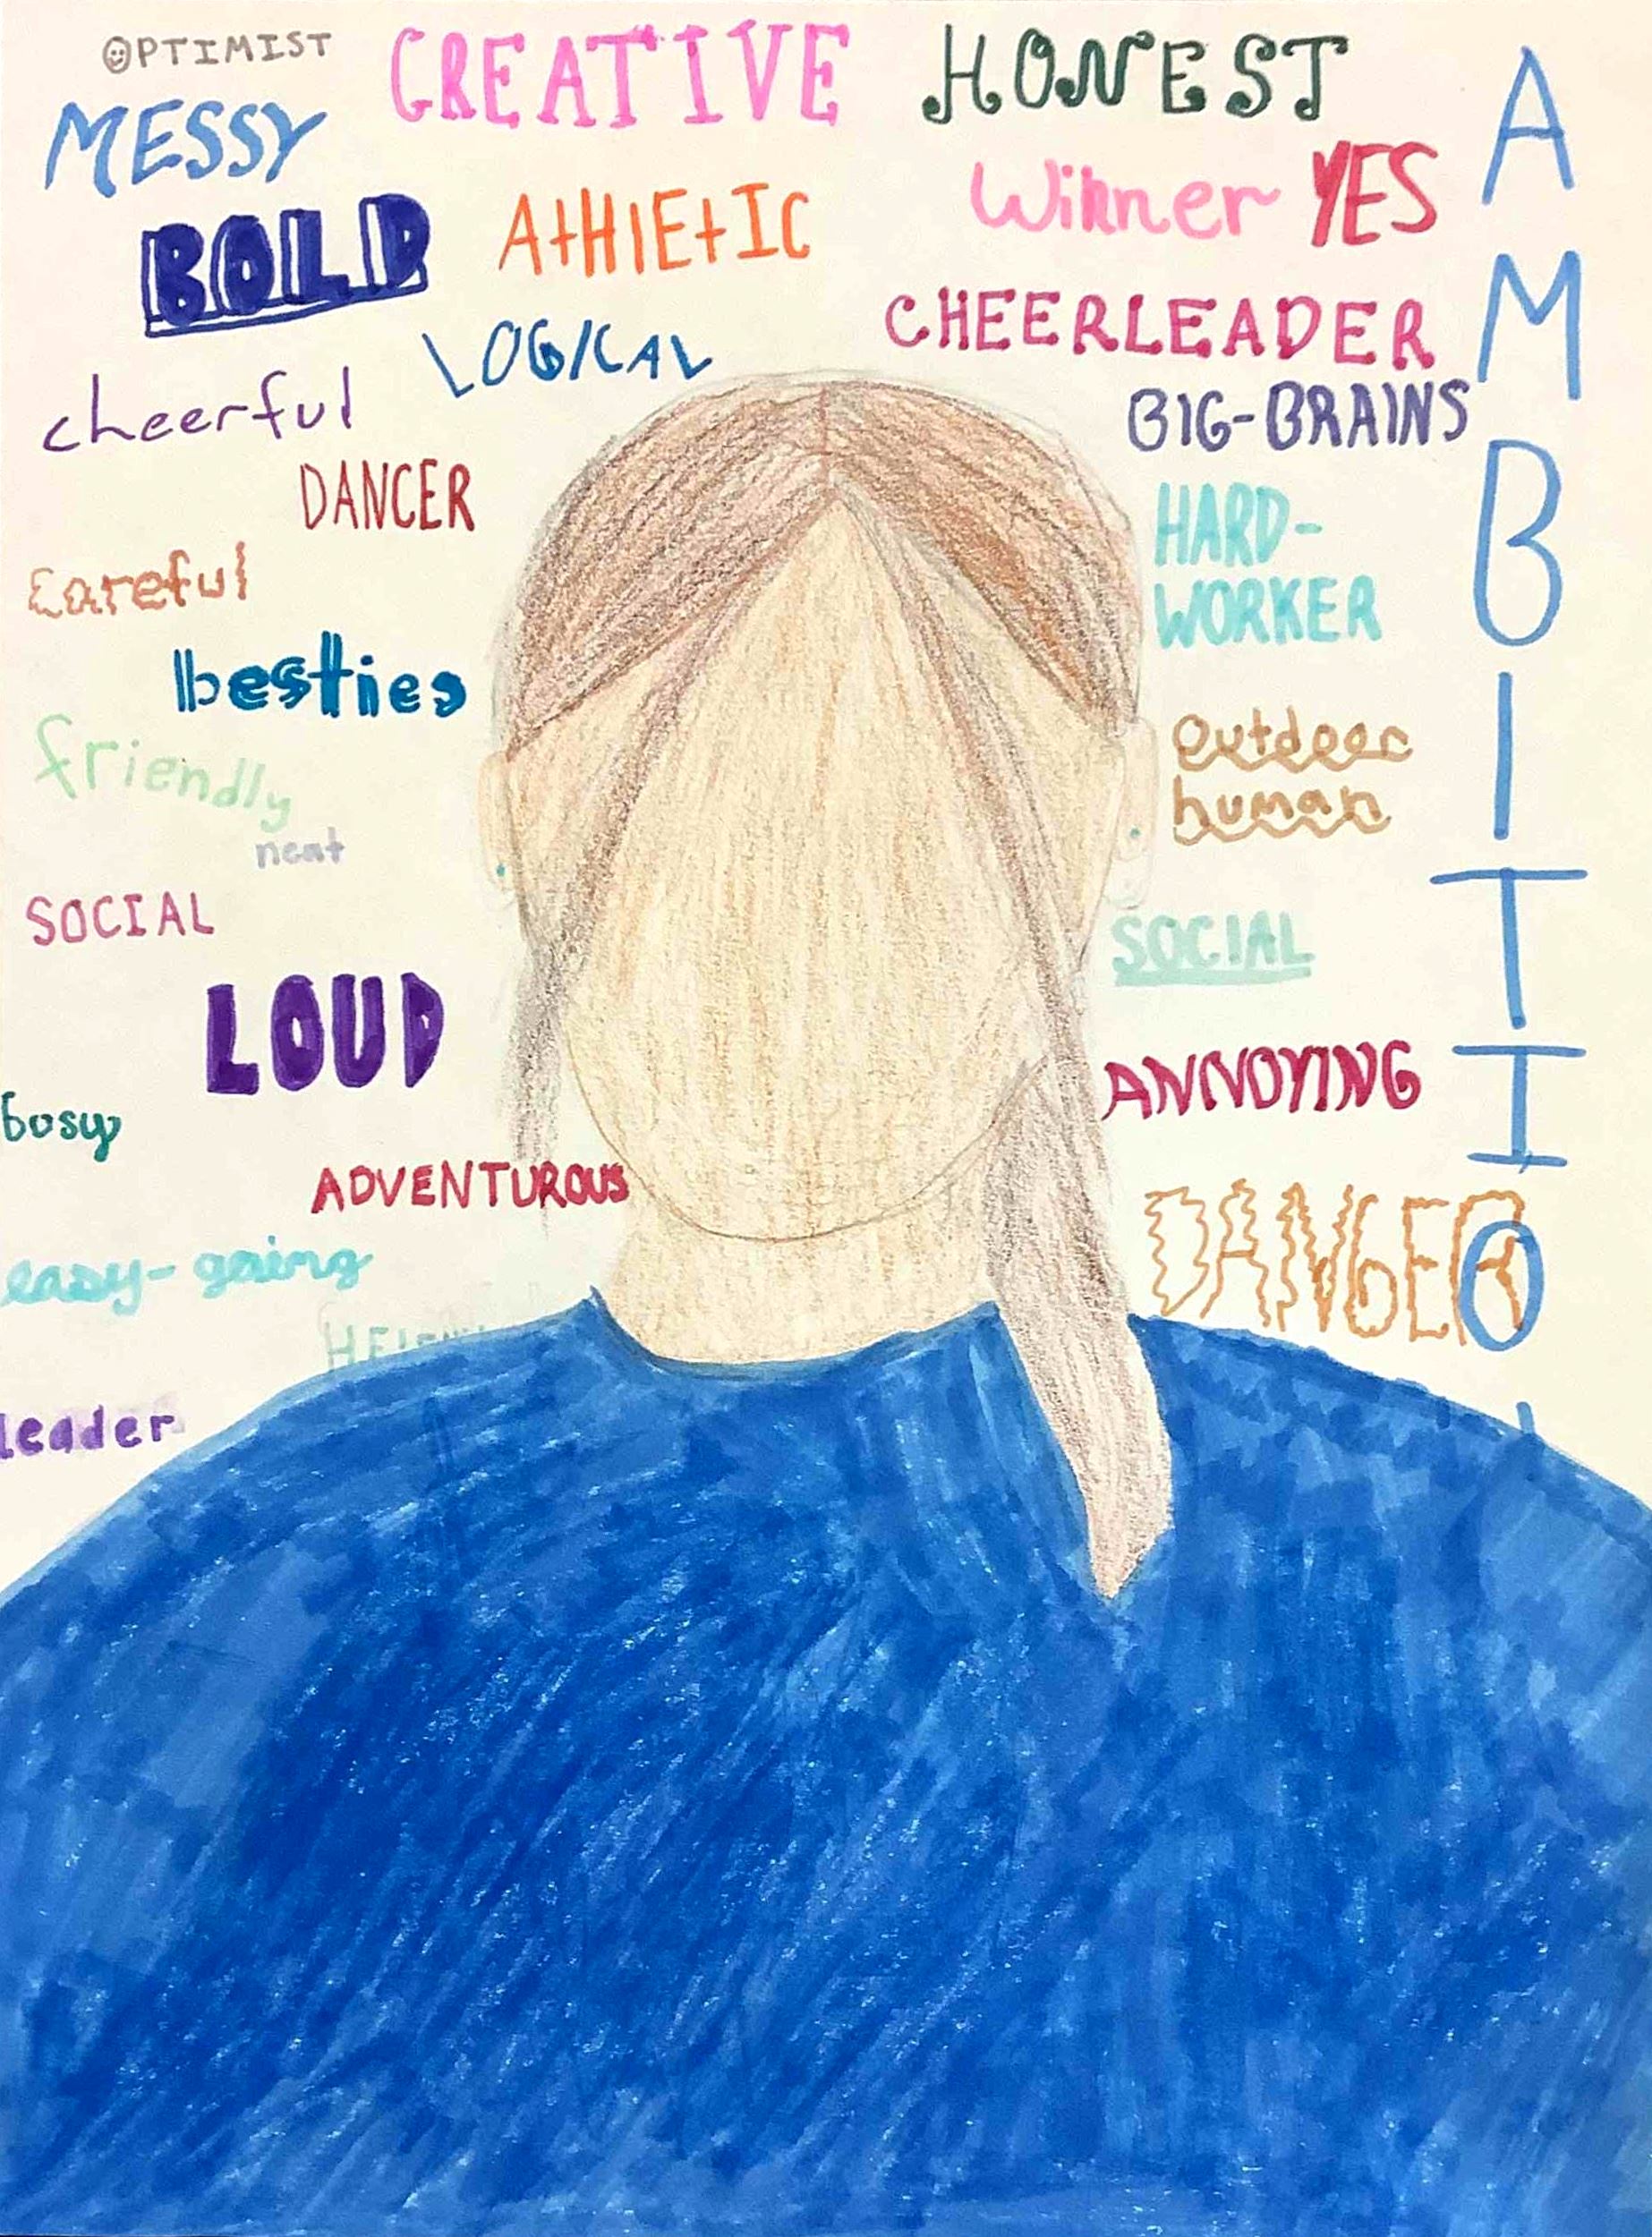 OPTIMIST
CREATIVE
HONEST
MESSY
Winner YES
BOLD
AtHlEtIC
CHEERLEADER
LOGICAL
cheerful
BIG-BRAINS
DANCER
HARD-
WORKER
careful
besties
outdoor
human
friendly
neat
SOCIAL
SOCIAL
LOUD
ANNOYING
busy
ADVENTUROUS
DANGER
easy-going
leader
AMBITIO